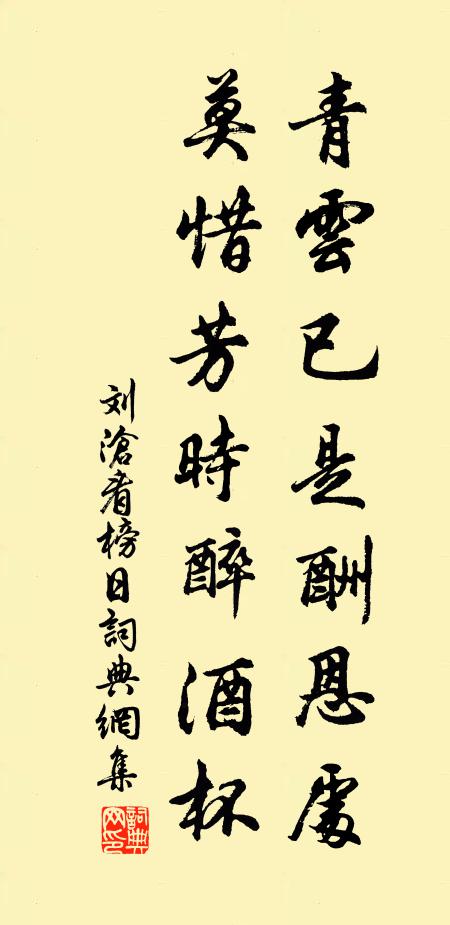 青雲已是酬恩處
莫惜芳時醉酒杯
刘滄看榜日詞典網集
詞典网印